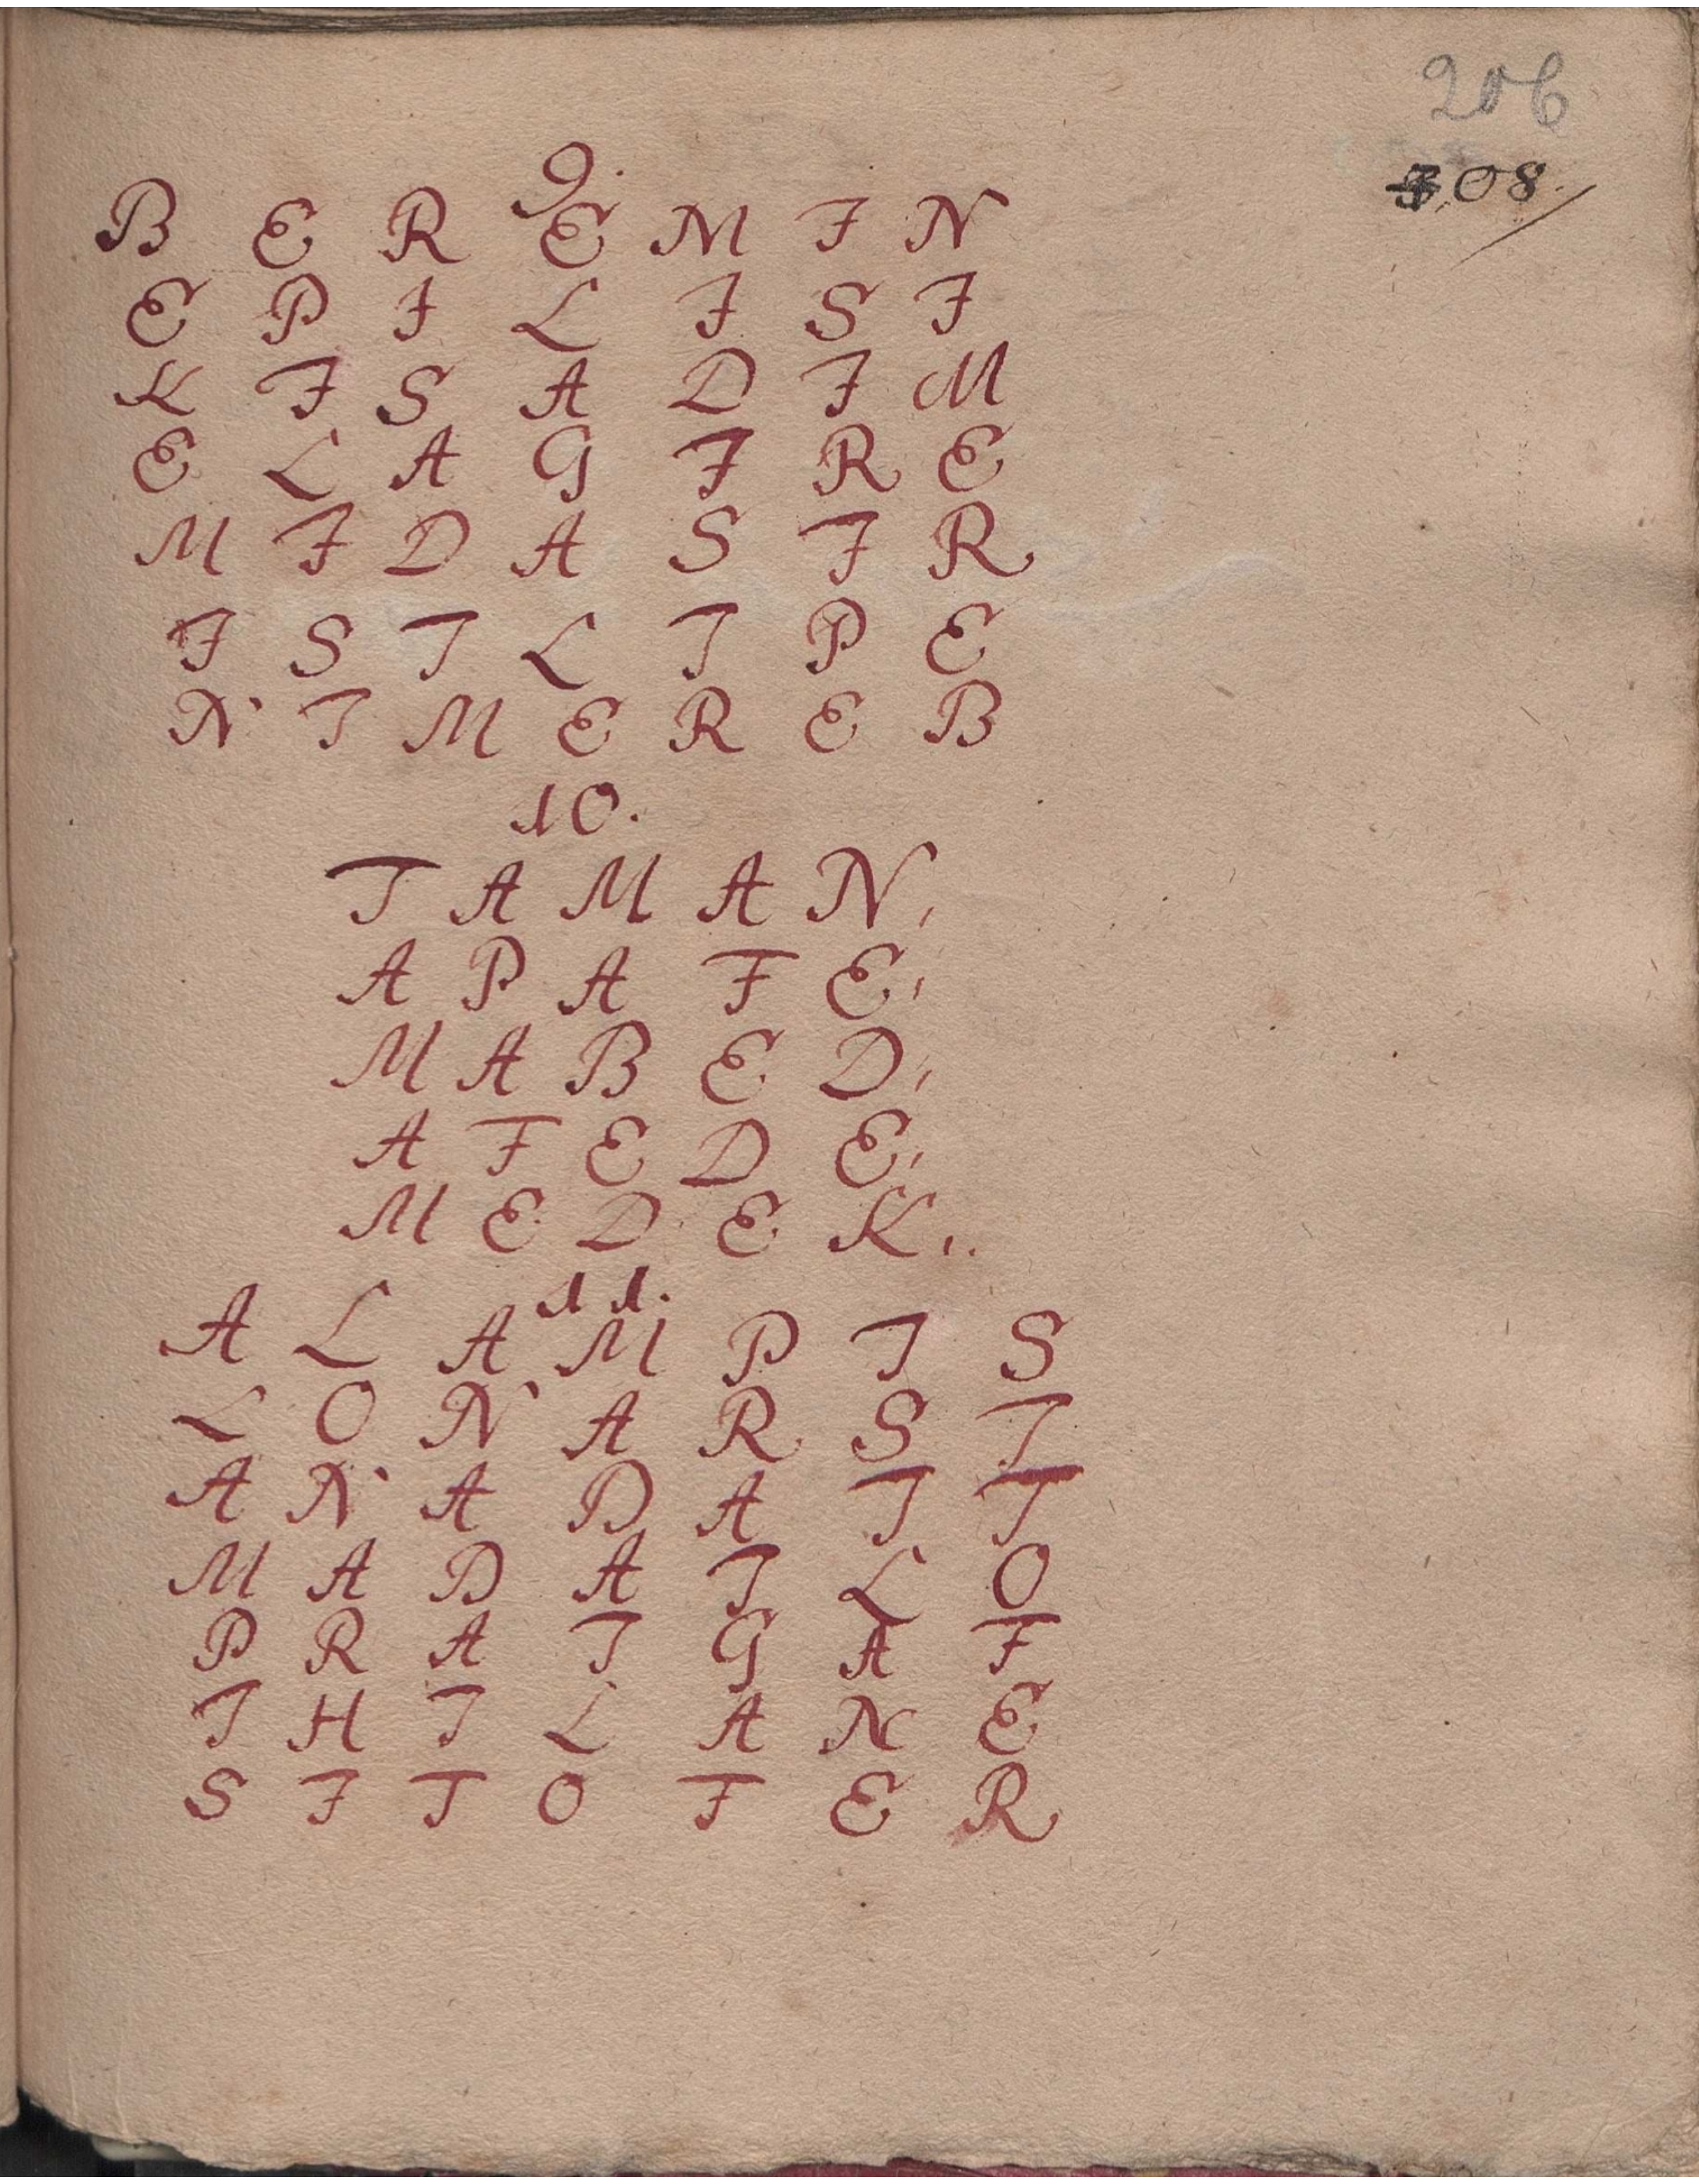 206
308
9.
B E R E M I N
E P I L I S I
K I S A D I M
E L A G I R E
M I D A S I R
I S I L I P E
N I M E R E B
10.
T A M A N,
A P A F E,
M A B E D,
A F E D E,
M E D E K,..
11.
A L A M P I S
L O N A R S I
A N A D A I T
M A D A I L O
P R A I G A F
I H I L A N E
S I T O F E R